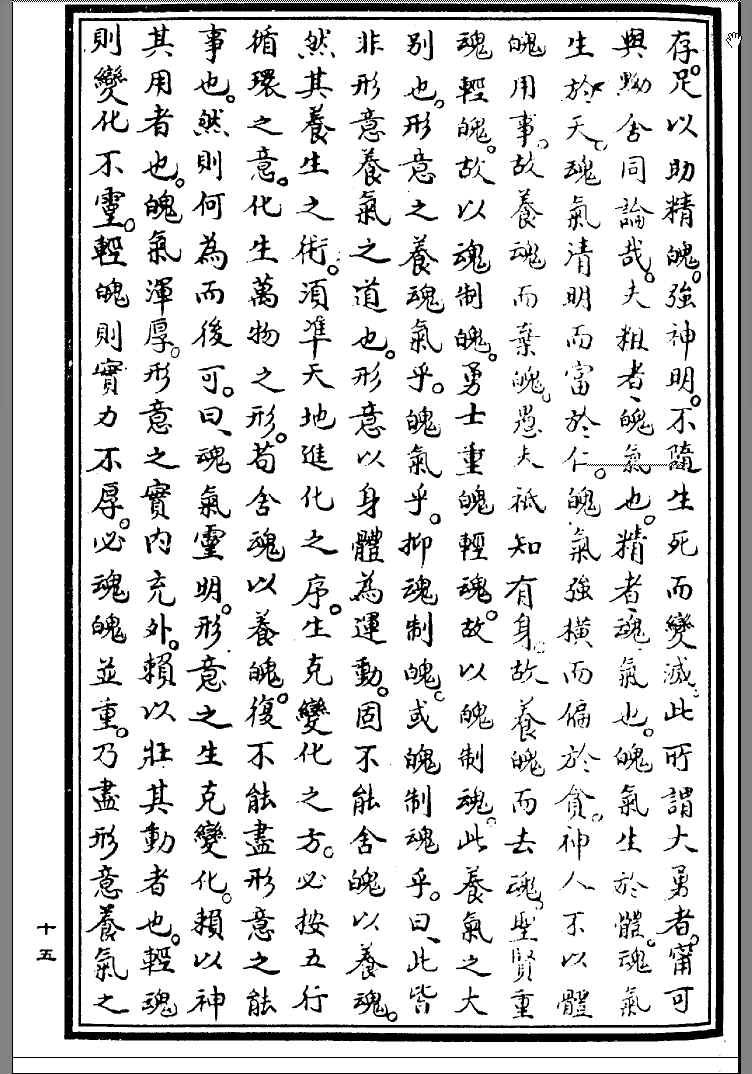 存。足以助精魄。強神明。不隨生死而變滅。此所謂大勇者。甯可
與黝舍同論哉。夫粗者、魄氣也。精者、魂氣也。魄氣生於體。魂氣
生於天。魂氣清明而富於仁。魄氣強橫而偏於貪。神人不以體
魄用事。故養魂而棄魄。愚夫祇知有身。故養魄而去魂。聖賢重
魂輕魄。故以魂制魄。勇士重魄輕魂。故以魄制魂。此養氣之大
別也。形意之養魂氣乎。魄氣乎。抑魂制魄。或魄制魂乎。曰、此皆
非形意養氣之道也。形意以身體為運動。固不能舍魄以養魂。
然其養生之術。須準天地進化之序。生克變化之方。必按五行
循環之意。化生萬物之形。苟舍魂以養魄。復不能盡形意之能
事也。然則何為而後可。曰、魂氣靈明。形意之生克變化。賴以神
其用者也。魄氣渾厚。形意之實內充外。賴以壯其動者也。輕魂
則變化不靈。輕魄則實力不厚。必魂魄並重。乃盡形意養氣之
十五